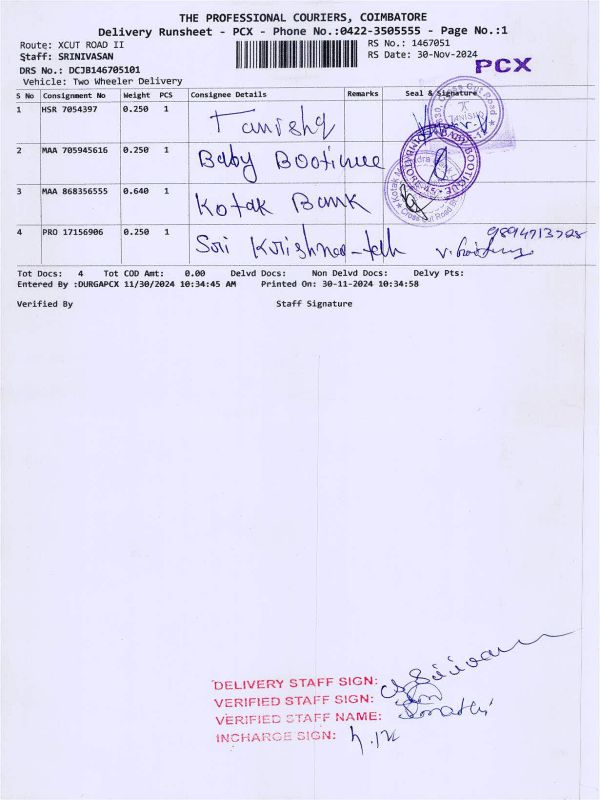 THE PROFESSIONAL COURIERS, COIMBATORE
Delivery Runsheet - PCX - Phone No.:0422-3505555 - Page No.:1
Route: XCUT ROAD II
RS No.: 1467051
Staff: SRINIVASAN
RS Date: 30-Nov-2024
PCX
DRS No.: DCJB146705101
Vehicle: Two Wheeler Delivery
S No Consignment No Weight PCS Consignee Details Remarks Seal & Signature
1 HSR 7054397 0.250 1 Tanishq
2 MAA 705945616 0.250 1 Baby Bootique
3 MAA 868356555 0.640 1 Kotak Bank
4 PRO 17156906 0.250 1 Sri Krishna
TANISHQ
Cross Cut Road
BABY BOOTIQUE
Tot Docs: 4 Tot COD Amt: 0.00 Delvd Docs: Non Delvd Docs: Delvy Pts:
Entered By :DURGAPCX 11/30/2024 10:34:45 AM Printed On: 30-11-2024 10:34:58
Verified By Staff Signature
DELIVERY STAFF SIGN:
VERIFIED STAFF SIGN:
VERIFIED STAFF NAME:
INCHARGE SIGN: